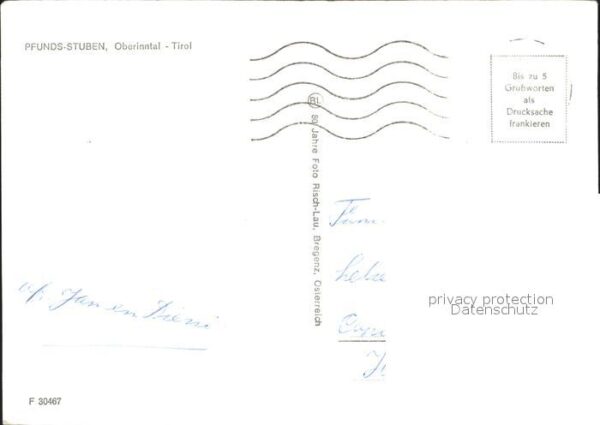 PFUNDS-STUBEN, Oberinntal - Tirol
Bis zu 5
Grußworten
als
Drucksache
frankieren
80 Jahre Foto Risch-Lau, Bregenz, Österreich
Fam
Jan en
privacy protection
Datenschutz
F 30467